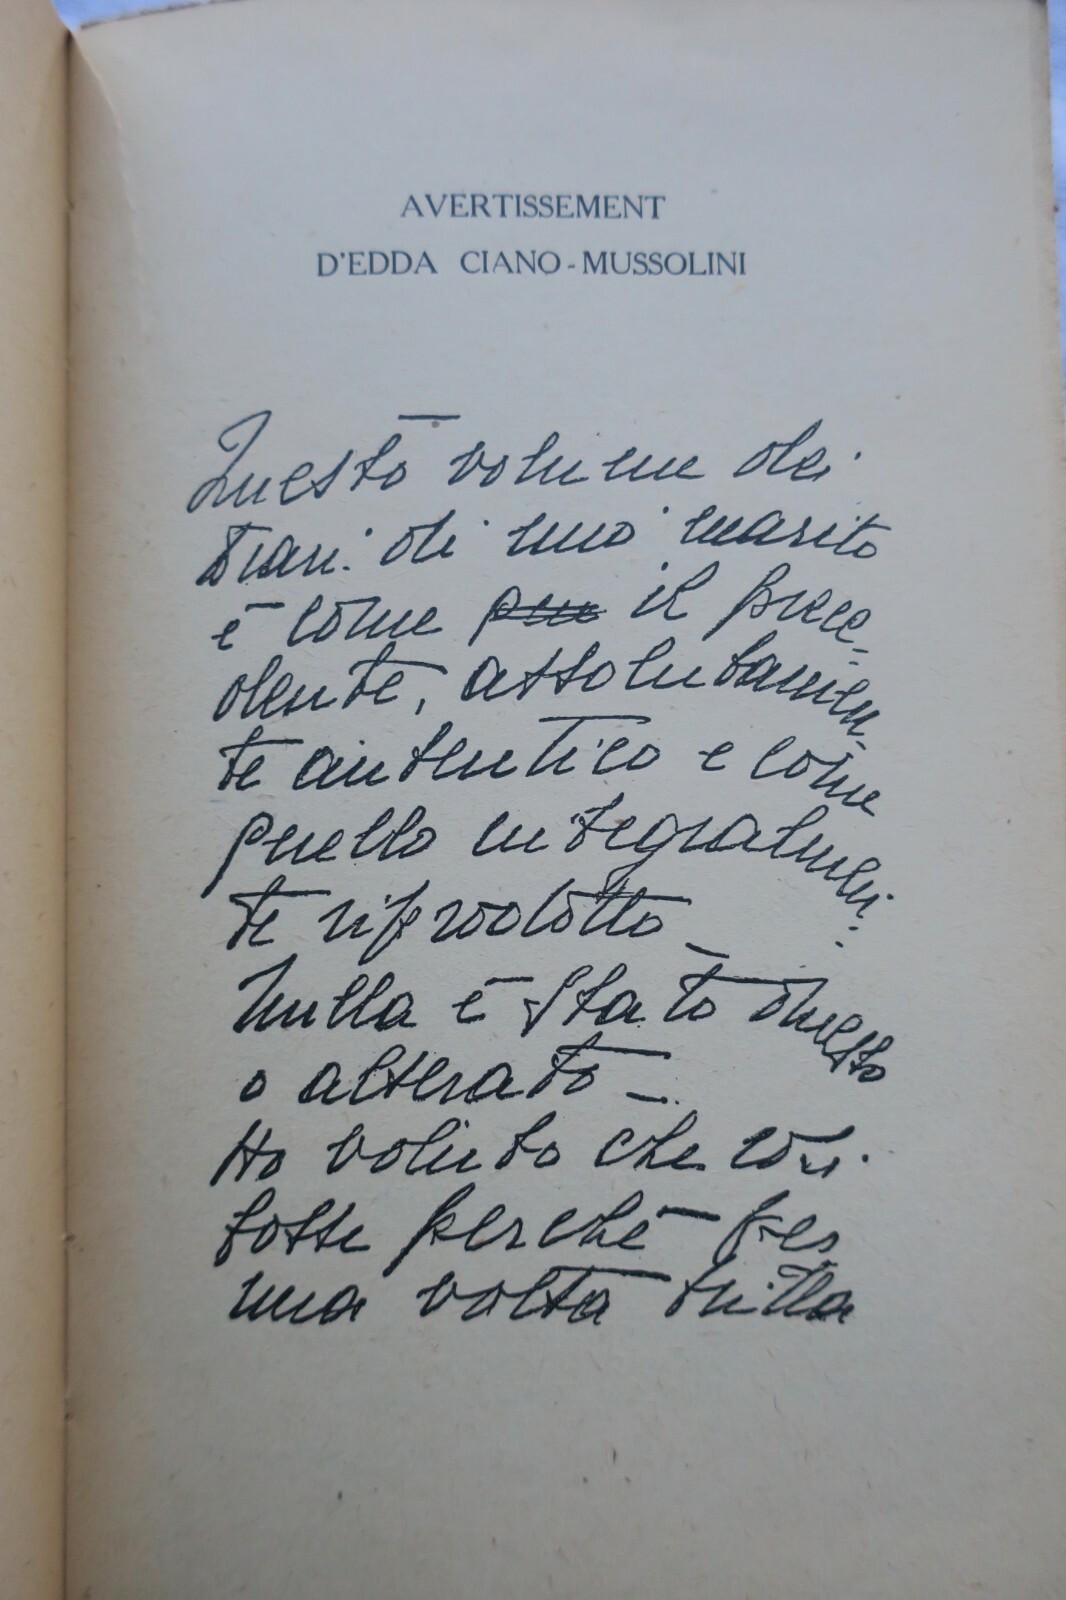 AVERTISSEMENT
D'EDDA CIANO-MUSSOLINI
Questo volume dei
Diari di mio marito
è come il prece-
dente, assolutamen-
te autentico e come
quello integralmen-
te riprodotto_
Nulla è stato omesso
o alterato_
Ho voluto che così
fosse perchè per
una volta tutta